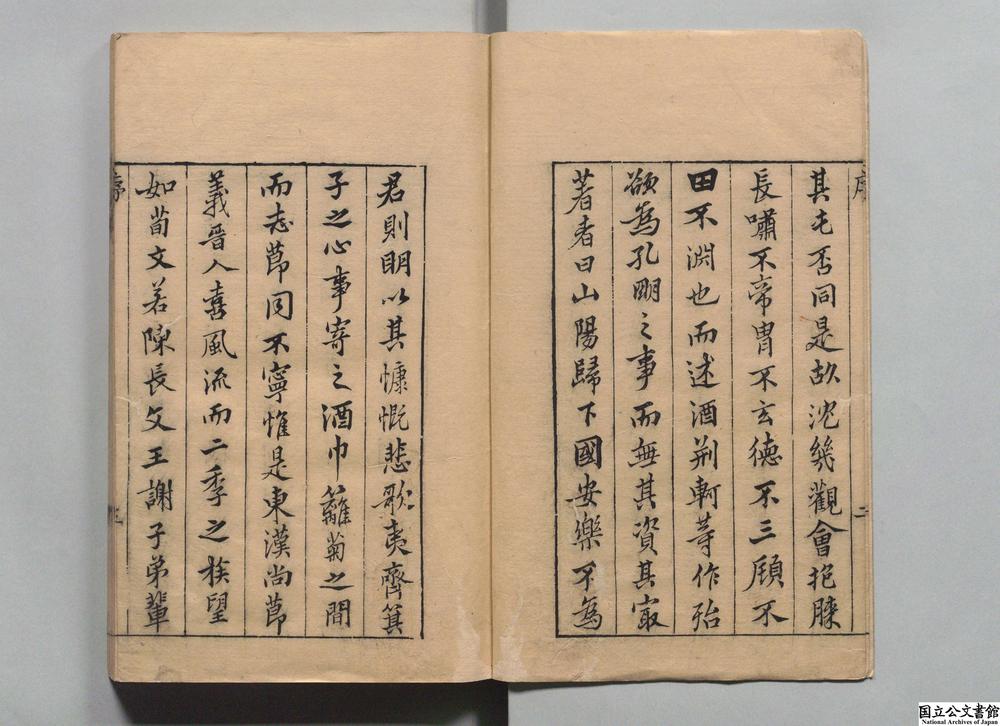 序
二
其屯否同是故沈幾觀會抱膝
長嘯不帝胄不玄德不三顧不
田不淵也而述酒荆軻等作殆
欲為孔明之事而無其資其寂
著者曰山陽歸下國安樂不為
君則明以其慷慨悲歌夷齊箕
子之心事寄之酒巾籬菊之間
而志節同不寧惟是東漢尚節
義晉人喜風流而二季之族望
如荀文若陳長文王謝子弟輩
序
三
国立公文書館
National Archives of Japan